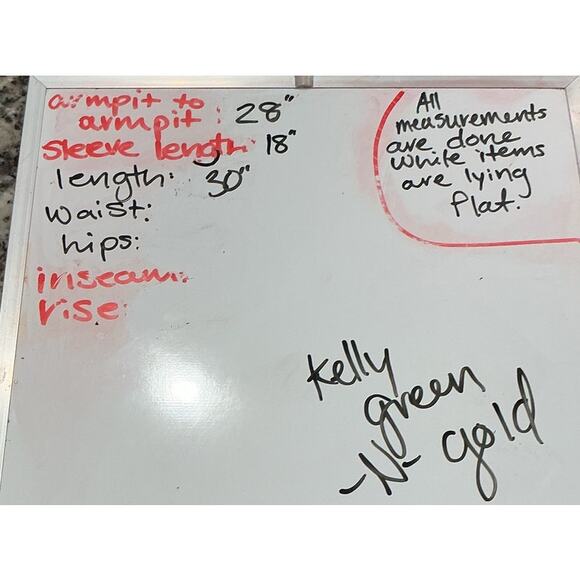 armpit to
armpit: 28"
sleeve length: 18"
length: 30"
waist:
hips:
inseam:
rise:
All
measurements
are done
while items
are lying
flat.
Kelly
green
-N- gold